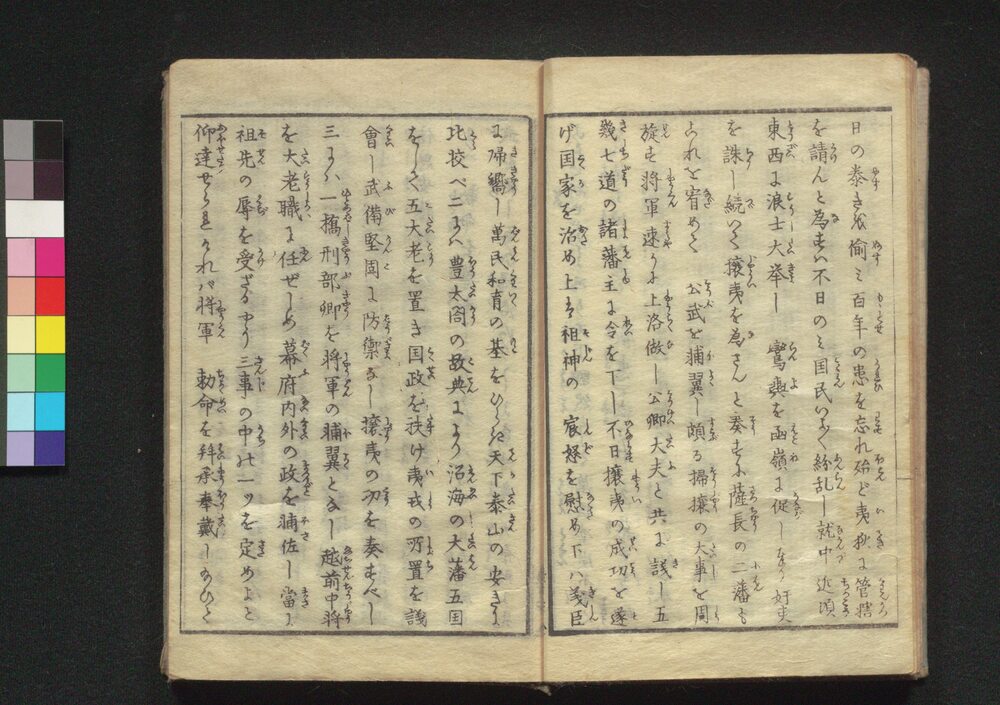 日の泰きを偸ミ百年の患を忘れ殆ど夷狄に管轄
を請んと為すハ不日のミ国民いよ〳〵紛乱し就中近頃
東西に浪士大挙し　鸞輿を函嶺に促しまゐ奸吏
を誅し続いて攘夷を為さんと奏すに薩長の二藩も
これを宥めて　公武を補翼し頗る掃攘の大事を周
旋す将軍速かに上洛做し公卿大夫と共に議し五
畿七道の諸藩主に令を下し不日攘夷の成功を遂
げ国家を治め上ハ祖神の　宸怒を慰め下ハ義臣
に帰嚮し萬民和育の基をひらき天下泰山の安きに
比校べ二にハ豊太閤の故典により沿海の大藩五国
をして五大老を置き国政を扶け夷戎の所置を議
會し武備堅固に防禦なし攘夷の功を奏すべし
三にハ一橋刑部卿を将軍の補翼となし越前中将
を大老職に任ぜしめ幕府内外の政を補佐し當に
祖先の辱を受ざるやう三事の中の一ッを定めよと
仰達せられければ将軍　勅命を拜承奉戴しあひて